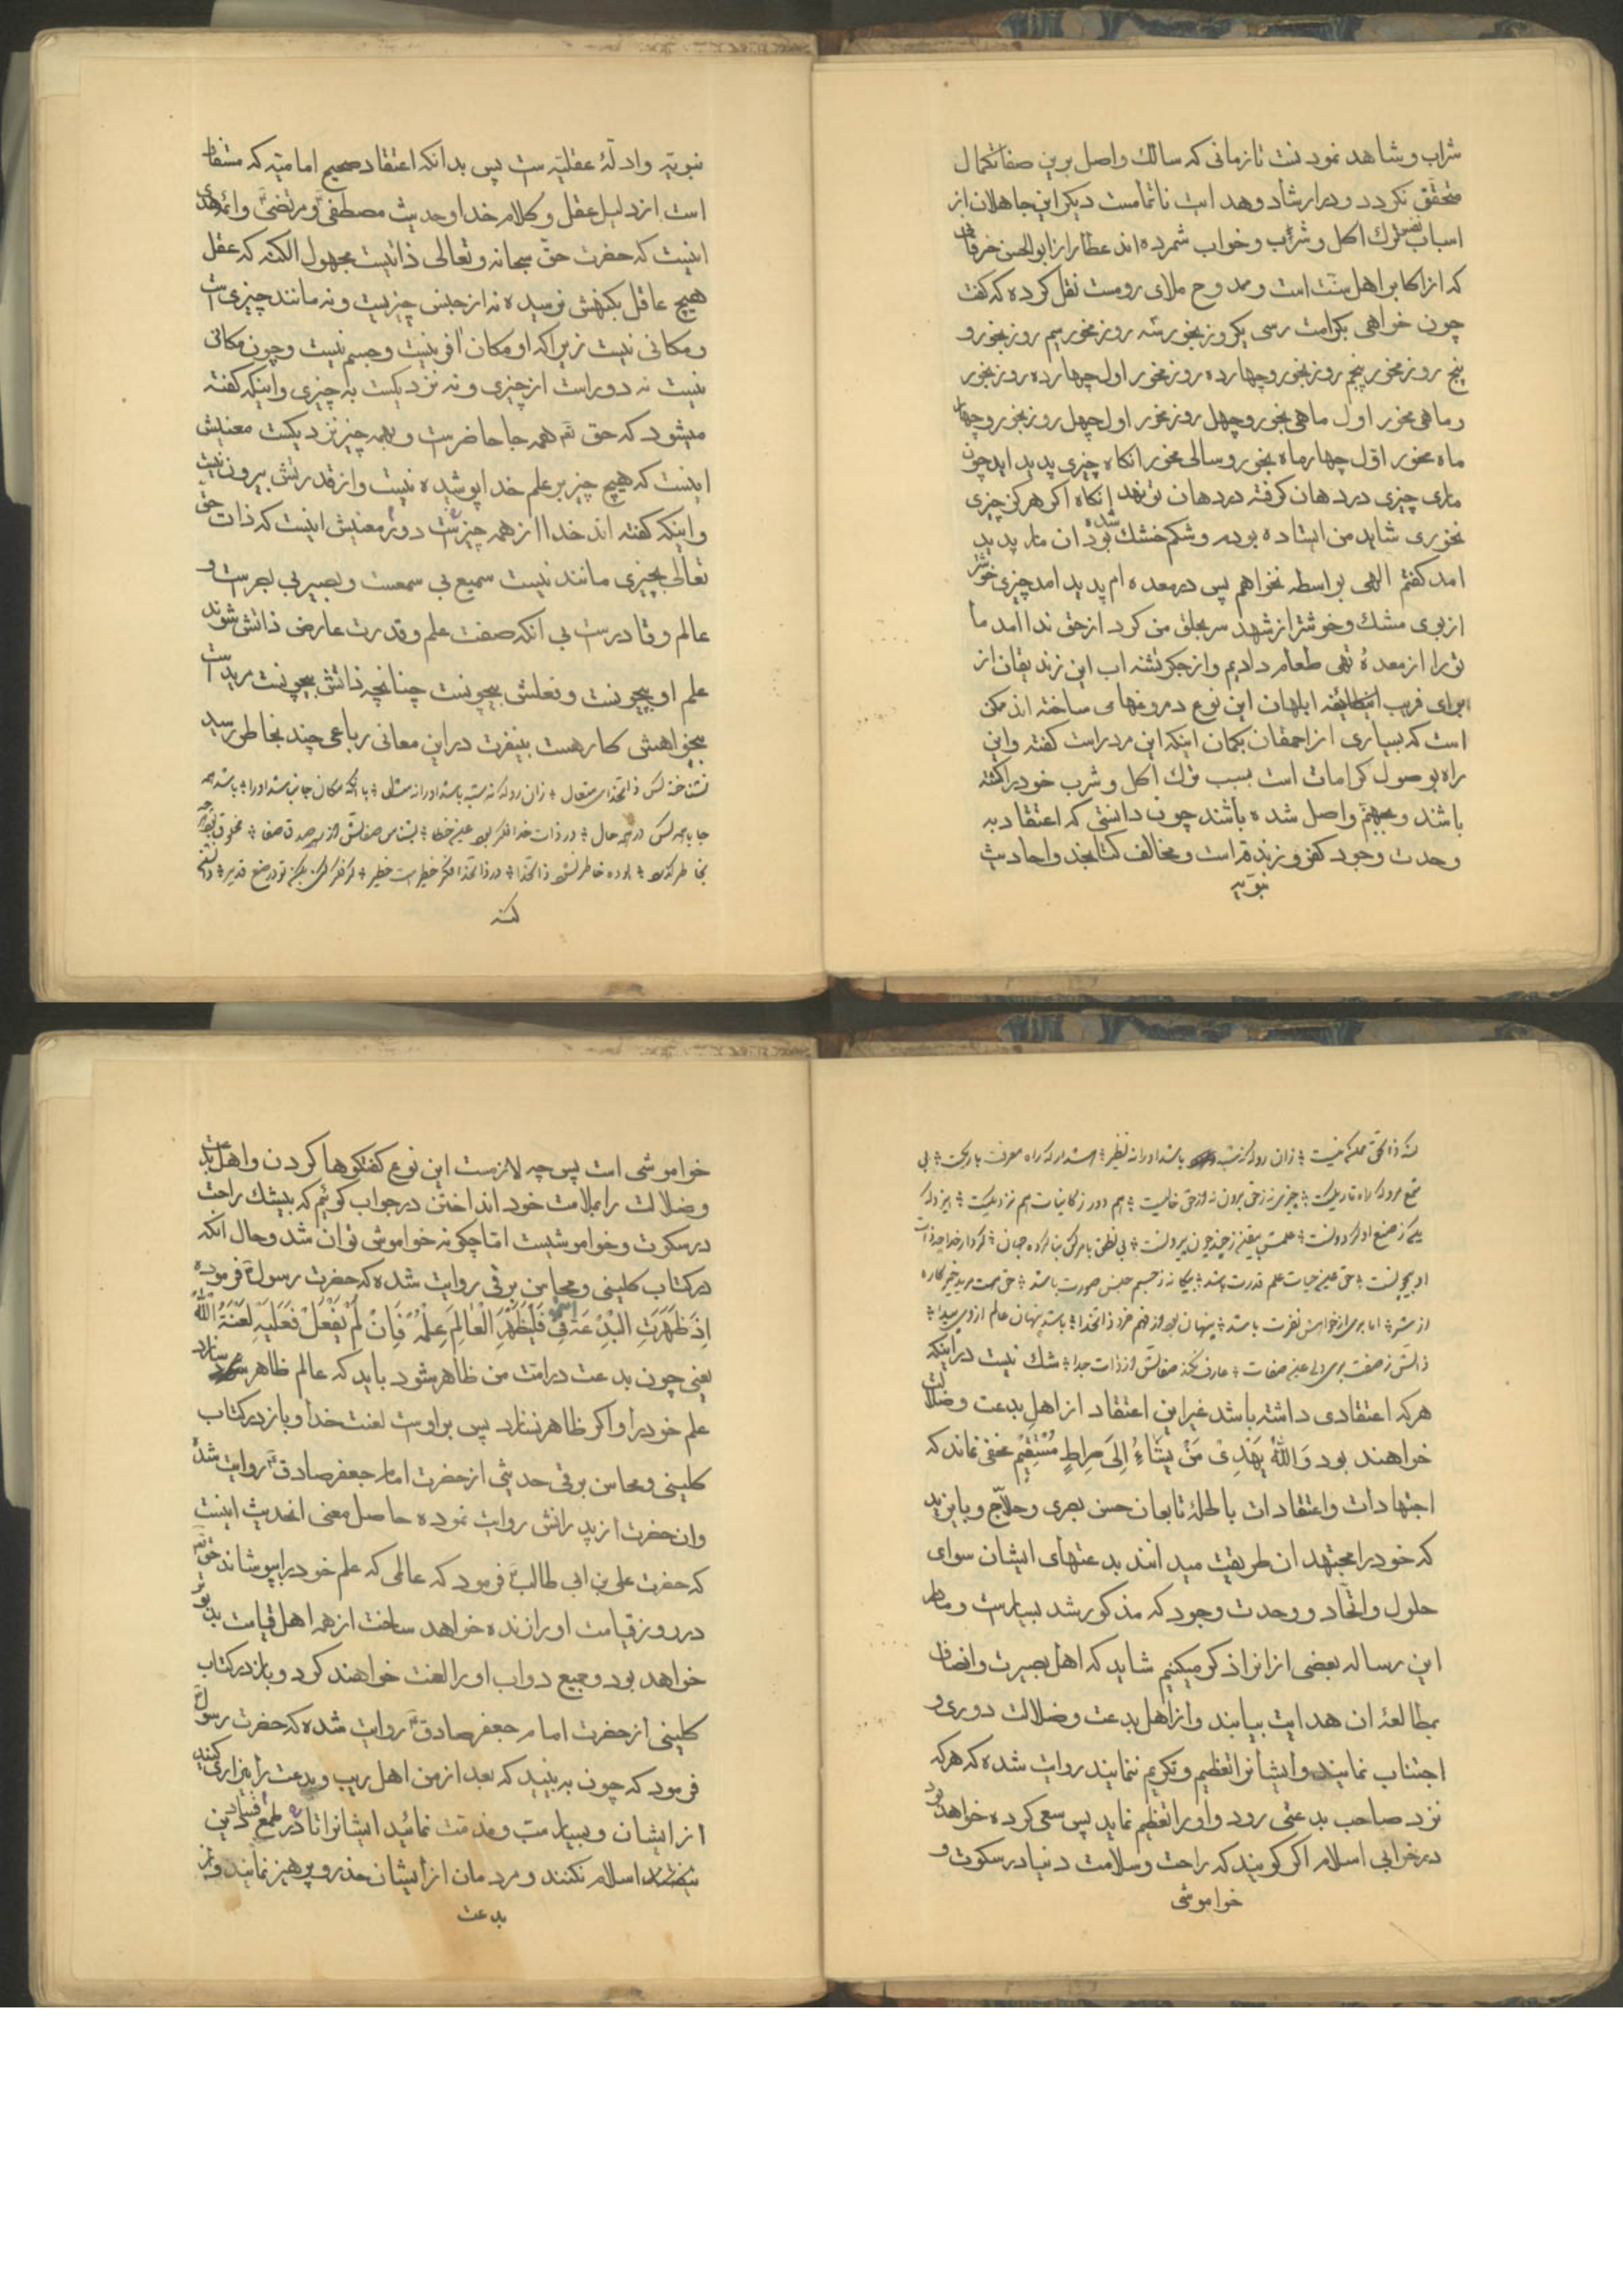 شراب و شاهد نمودنت تا زمانی که سالک واصل برین صفات کمال
متحقق نکردد و در ارشاد و هدایت ناتمامست دیکر این جاهلان از
اسباب ترک اکل و شرب و خواب شمرده اند عطار از ابوالحسن خرقانی
که از اکابر اهل سنت است و ممدوح ملای رومست نقل کرده که کفت
چون خواهی بکرامت رسی یکروز بخور سه روز مخور سیم روز بخور و
پنج روز مخور پنجم روز بخور و چهارده روز مخور اول چهارده روز بخور
و ماهی مخور اول ماهی بخور و چهل روز مخور اول چهل روز بخور و چهار
ماه مخور اول چهار ماه بخور و سالی مخور انکاه چیزی پدید اید چون
ماری چیزی در دهان کرفته در دهان تو نهد انکاه اکر هرکز چیزی
نخوری شاید من ایستاده بودم و شکم خشک شده بود ان مار پدید
امد کفتم الهی بواسطه نخواهم پس در معده ام پدید امد چیزی خوشتر
از بوی مشک و خوشتر از شهد سر بحلق من کرد از حق ندا امد ما
تو را از معدهٔ تهی طعام دادیم و از جکر تشنه اب این زندیقان از
برای فریب ابلهان این نوع دروغها می ساخته اند ممکن
است که بسیاری از احمقان بکمان اینکه این مرد راست کفته و این
راه بوصول کرامات است بسبب ترک اکل و شرب خود را کشته
باشند و بجهنم واصل شده باشند چون دانستی که اعتقاد به
وحدت وجود کفر و زندقه است و مخالف کتابخدا و احادیث
نبویه
نبویه و ادلهٔ عقلیه ست پس بدانکه اعتقاد صحیح امامیه که مستفاد
است از دلیل عقل و کلام خدا و حدیث مصطفی و مرتضی و ائمه هدی
اینست که حضرت حق سبحانه و تعالی ذاتیست مجهول الکنه که عقل
هیچ عاقل بکنهش نرسیده نه از جنس چیزیست و نه مانند چیزی است
و مکانی نیست زیراکه او مکان افرینست و جسم نیست و چون مکانی
نیست نه دور است از چیزی و نه نزدیکست به چیزی و اینکه کفته
میشود که حق تع همه جا حاضرست و بهمه چیز نزدیکست معنیش
اینست که هیچ چیز بر علم خدا پوشیده نیست و از قدرتش بیرون نیست
و اینکه کفته اند خدا از همه چیز دورست معنیش اینست که ذات حق
تعالی بچیزی مانند نیست سمیع بی سمعست و بصیر بی بصرست و
عالم و قادرست بی انکه صفت علم و قدرت عارض ذاتش شوند
علم او بیچونست و فعلش بیچونست چنانچه ذاتش بیچونست مریدست
بیخواهش کارهست بینفرت در این معانی رباعی چند بخاطر رسید
نشناخته کس ذات خدای متعال زان رو که نه شبه باشد او را نه مثال
جا با همه کس در همه حال در ذات خدا فکر بود عین خطا
در ذات خدا فکر خطیرست خطیر
کنه
زان رو که نه شبه باشد او را نه نظیر
چیزی نه ز حق برون نه از حق خالیست هم دور ز کائنات هم نزدیکیست
حق عین حیات علم قدرت باشد
پنهان بود از فهم خرد ذات خدا باشد پنهان عالم از وی پیدا
ذاتش ز صفت بری ولی عین صفات شک نیست در اینکه
هرکه اعتقادی داشته باشد غیر این اعتقاد از اهل بدعت و ضلالت
خواهند بود وَاللهُ یَهْدِی مَنْ یَشَاءُ اِلَی صِراطٍ مُسْتَقِیْمٍ مخفی نماند که
اجتهادات و اعتقادات باطلهٔ تابعان حسن بصری و حلاج و بایزید
که خود را مجتهدان طریقت میدانند بدعتهای ایشان سوای
حلول و اتحاد و وحدت وجود که مذکور شد بسیارست و ما در
این رساله بعضی از انرا ذکر میکنیم شاید که اهل بصیرت و انصاف
بمطالعهٔ ان هدایت بیابند و از اهل بدعت و ضلالت دوری و
اجتناب نمایند و ایشانرا تعظیم و تکریم ننمایند روایت شده که هرکه
نزد صاحب بدعتی رود و او را تعظیم نماید پس سعی کرده خواهد بود
در خرابی اسلام اکر کویند که راحت و سلامت دنیا در سکوت و
خواموشی
خواموشی است پس چه لازمست این نوع کفتکوها کردن و اهل بدعت
و ضلالت را بملامت خود انداختن در جواب کوئیم که بیشک راحت
در سکوت و خواموشیست اما چکونه خواموش توان شد و حال انکه
در کتاب کلینی و محاسن برقی روایت شده که حضرت رسول ص فرموده
اِذَ ظَهَرَتِ الْبِدْعَةُ فِی اُمَّتِی فَلْیُظْهِرِ الْعَالِمُ عِلْمَهُ فَاِنْ لَمْ یَفْعَلْ فَعَلَیْهِ لَعْنَةُ اللهِ
یعنی چون بدعت در امت من ظاهر شود باید که عالم ظاهر سازد
علم خود را و اکر ظاهر نسازد پس بر اوست لعنت خدا و باز در کتاب
کلینی و محاسن برقی حدیثی از حضرت امام جعفر صادق ع روایت شده
و ان حضرت از پدرانش روایت نموده حاصل معنی انحدیث اینست
که حضرت علی بن ابی طالب ع فرمود که عالمی که علم خود را بپوشاند حق تع
در روز قیامت او را زنده خواهد ساخت از همه اهل قیامت بدبوتر
خواهد بود و جمیع دواب او را لعنت خواهند کرد و باز در کتاب
کلینی از حضرت امام جعفر صادق ع روایت شده که حضرت رسول ص
فرمود که چون به بینید که بعد از من اهل ریب و بدعت را بیزاری کنید
از ایشان و بسیار سب و مذمت نمائید ایشانرا تا در طمع فساد دین
اسلام نکنند و مردمان از ایشان حذر و پرهیز نمایند و از
بدعت